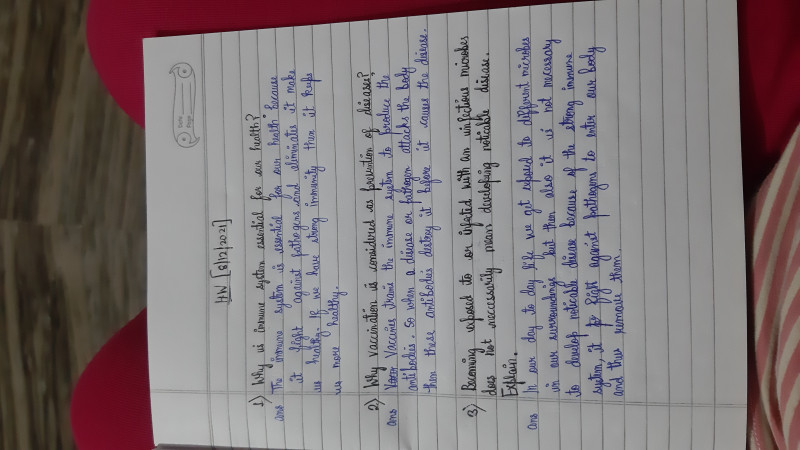 Date
Page
HW [8/12/2021]
1) Why is immune system essential for our health?
ans The immune system is essential for our health because
it fight against pathogens and eliminates it make
us healthy. If we have strong immunity then it keeps
us more healthy.
2) Why vaccination is considered as prevention of disease?
ans Vaccines trains the immune system to produce the
antibodies. So when a disease or pathogen attacks the body
then these antibodies destroy it before it causes the disease.
3) Becoming exposed to or infected with an infectious microbes
does not necessarily mean developing noticable disease.
Explain.
ans In our day to day life we get exposed to different microbes
in our surroundings but then also it is not necessary
to develop noticable disease because of the strong immune
system it fight against pathogens to enter our body
and thus remove them.